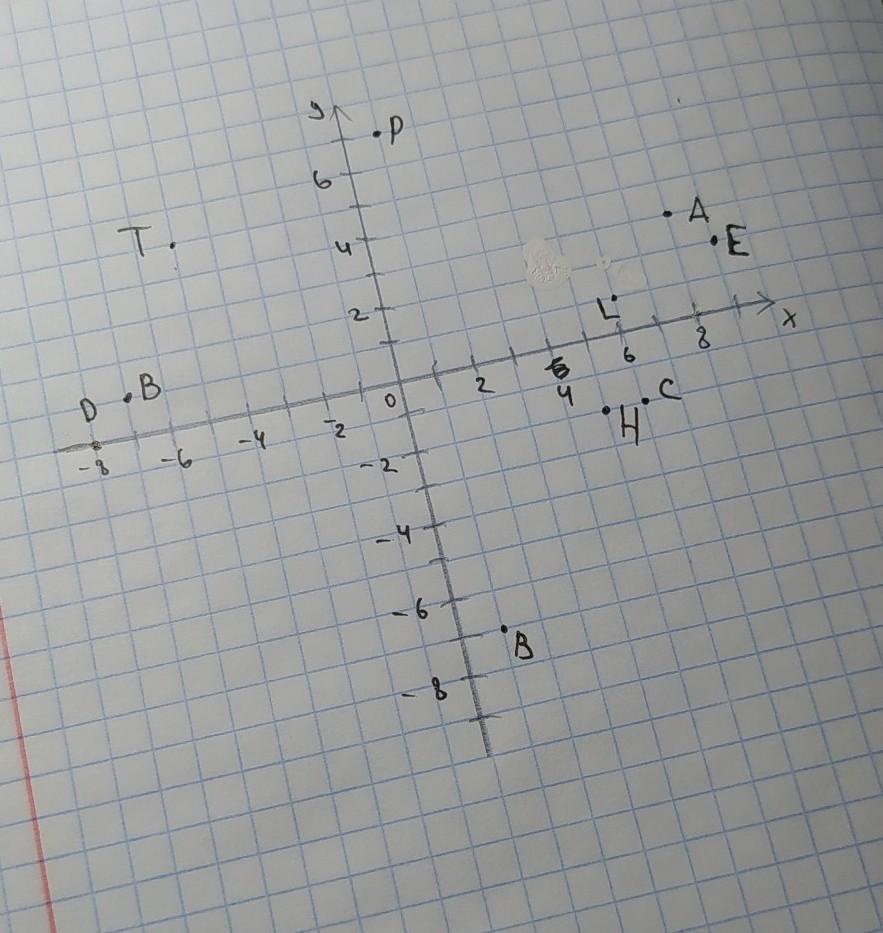 y
P
6
A
T
4
E
2
L
x
8
6
B
2
D
0
4
C
-2
H
-4
-6
-8
-2
-4
-6
B
-8